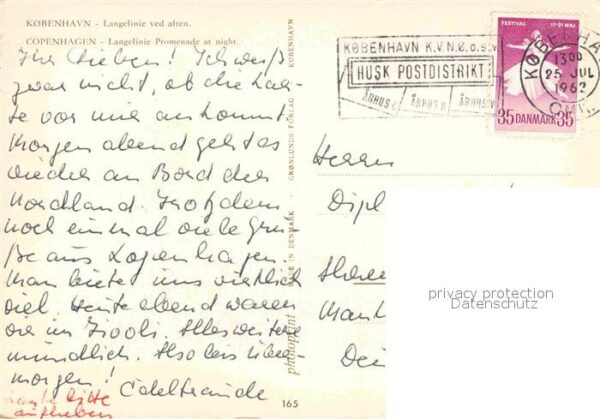 KØBENHAVN - Langelinie ved aften.
COPENHAGEN - Langelinie Promenade at night.
Ihr Lieben! Ich weiß
zwar nicht, ob die Kar-
te vor mir ankommt.
Morgen abend geht es
wieder an Bord der
Nordland. Trotzdem
noch einmal viele Grü-
ße aus Kopenhagen.
Man bietet uns wirklich
viel. Heute abend waren
wir im Tivoli. Alles weitere
mündlich. Also bis über-
morgen! Edeltraude
Karte bitte
aufheben
165
photoprint MADE IN DENMARK - GRØNLUNDS FORLAG KØBENHAVN
KØBENHAVN K.V.N.Ø.o.s.v
HUSK POSTDISTRIKT
ÅRHUS C ÅRHUS N ÅRHUS V
FESTIVAL 17-31 MAJ
35 DANMARK 35
KØBENHAVN
1300
25 JUL
1962
OMK.
Herrn
Dipl
Mann
Dei
privacy protection
Datenschutz